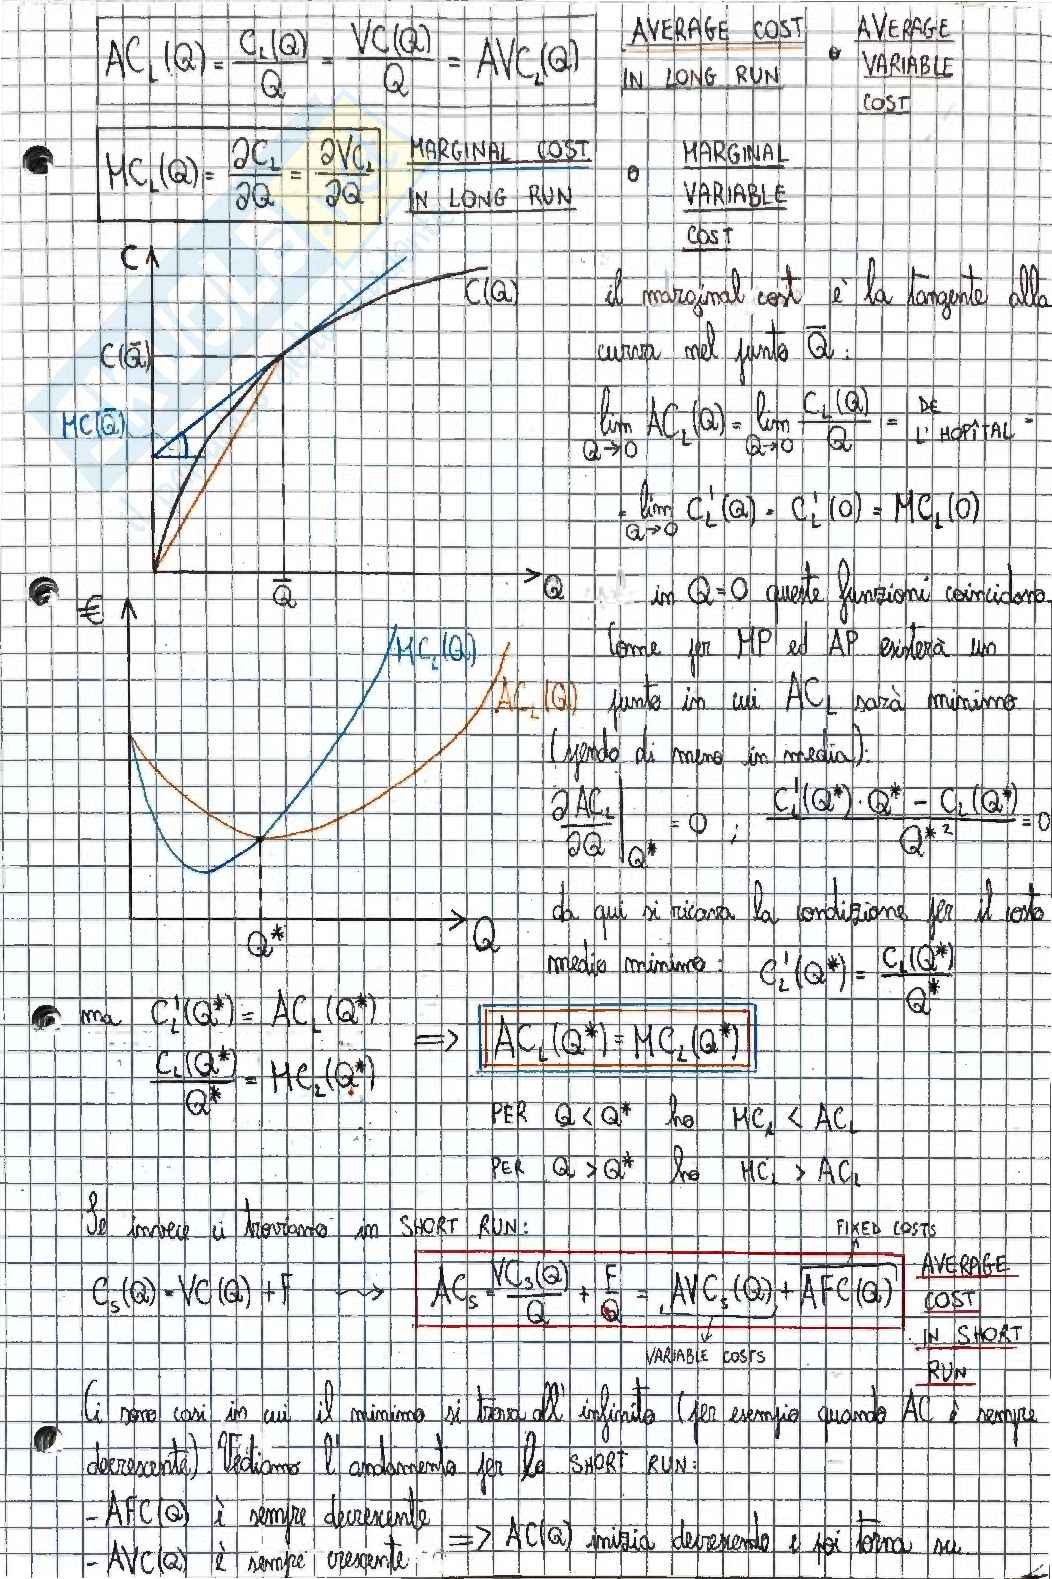 AC_L(Q) = C_L(Q)/Q = VC(Q)/Q = AVC_L(Q)
AVERAGE COST IN LONG RUN o AVERAGE VARIABLE COST
MC_L(Q) = ∂C_L/∂Q = ∂VC_L/∂Q
MARGINAL COST IN LONG RUN o MARGINAL VARIABLE COST
C
C(Q)
C(Q̄)
MC(Q̄)
Q̄
Q
il marginal cost è la tangente alla
curva nel punto Q̄:
lim Q→0 AC_L(Q) = lim Q→0 C_L(Q)/Q = DE L'HOPÎTAL =
= lim Q→0 C'_L(Q) = C'_L(0) = MC_L(0)
in Q=0 queste funzioni coincidono.
Come per MP ed AP esisterà un
punto in cui AC_L sarà minimo
di meno in media):
∂AC_L/∂Q |Q* = 0 ; C'_L(Q*)·Q* − C_L(Q*)/Q*² = 0
€
MC_L(Q)
AC_L(Q)
Q*
Q
da qui si ricava la condizione per il costo
medio minimo: C'_L(Q*) = C_L(Q*)/Q*
ma C'_L(Q*) = AC_L(Q*)
C_L(Q*)/Q* = MC_L(Q*)
=> AC_L(Q*) = MC_L(Q*)
PER Q < Q* ho MC_L < AC_L
PER Q > Q* ho MC_L > AC_L
Se invece ci troviamo in SHORT RUN:
FIXED COSTS
C_S(Q) = VC(Q) + F → AC_S = VC_S(Q)/Q + F/Q = AVC_S(Q) + AFC(Q)
VARIABLE COSTS
AVERAGE COST IN SHORT RUN
Ci sono casi in cui il minimo si trova all'infinito (per esempio quando AC è sempre
decrescente). Vediamo l'andamento per lo SHORT RUN:
- AFC(Q) è sempre decrescente
- AVC(Q) è sempre crescente
=> AC(Q) inizia decrescendo e poi torna su